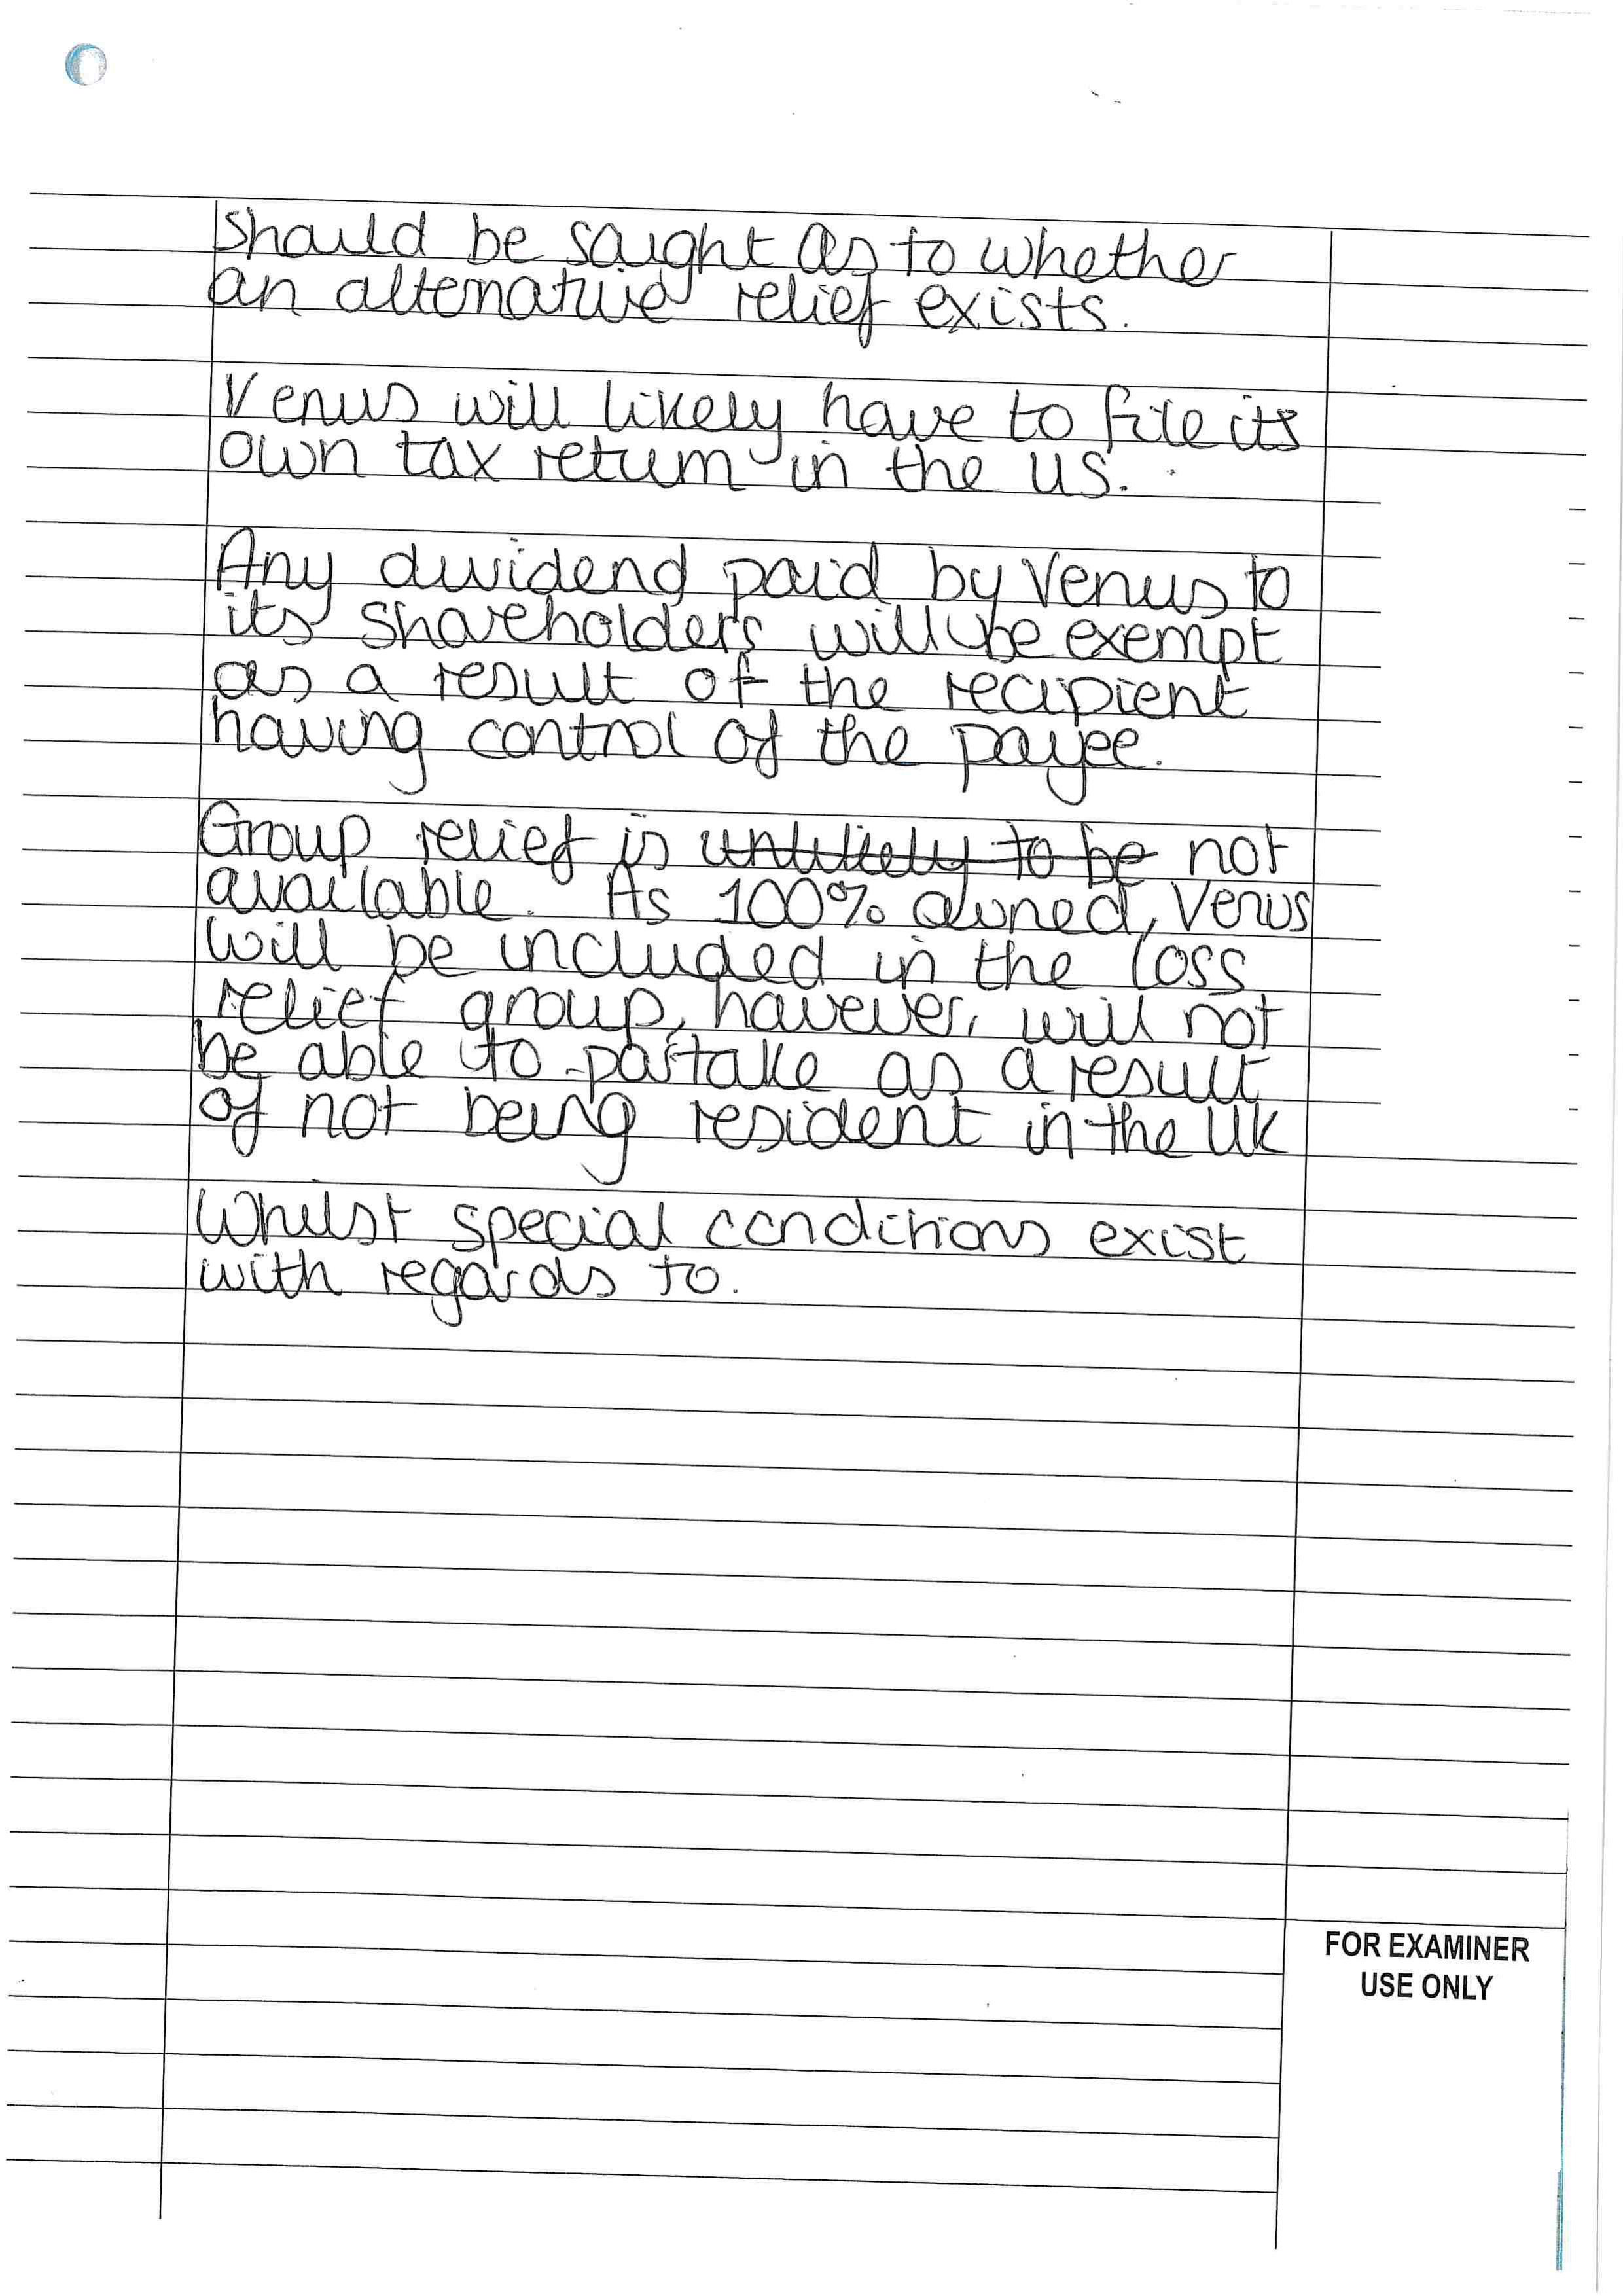 should be saught as to whether
an alternative relief exists.
Venus will likely have to file its
own tax return in the US.
Any dividend paid by Venus to
its shareholders will be exempt
as a result of the recipient
having control of the payee.
Group relief is ~~unlikely to be~~ not
available. As 100% owned, Venus
will be included in the loss
relief group, however, will not
be able to partake as a result
of not being resident in the UK
Whilst special conditions exist
with regards to.
FOR EXAMINER
USE ONLY